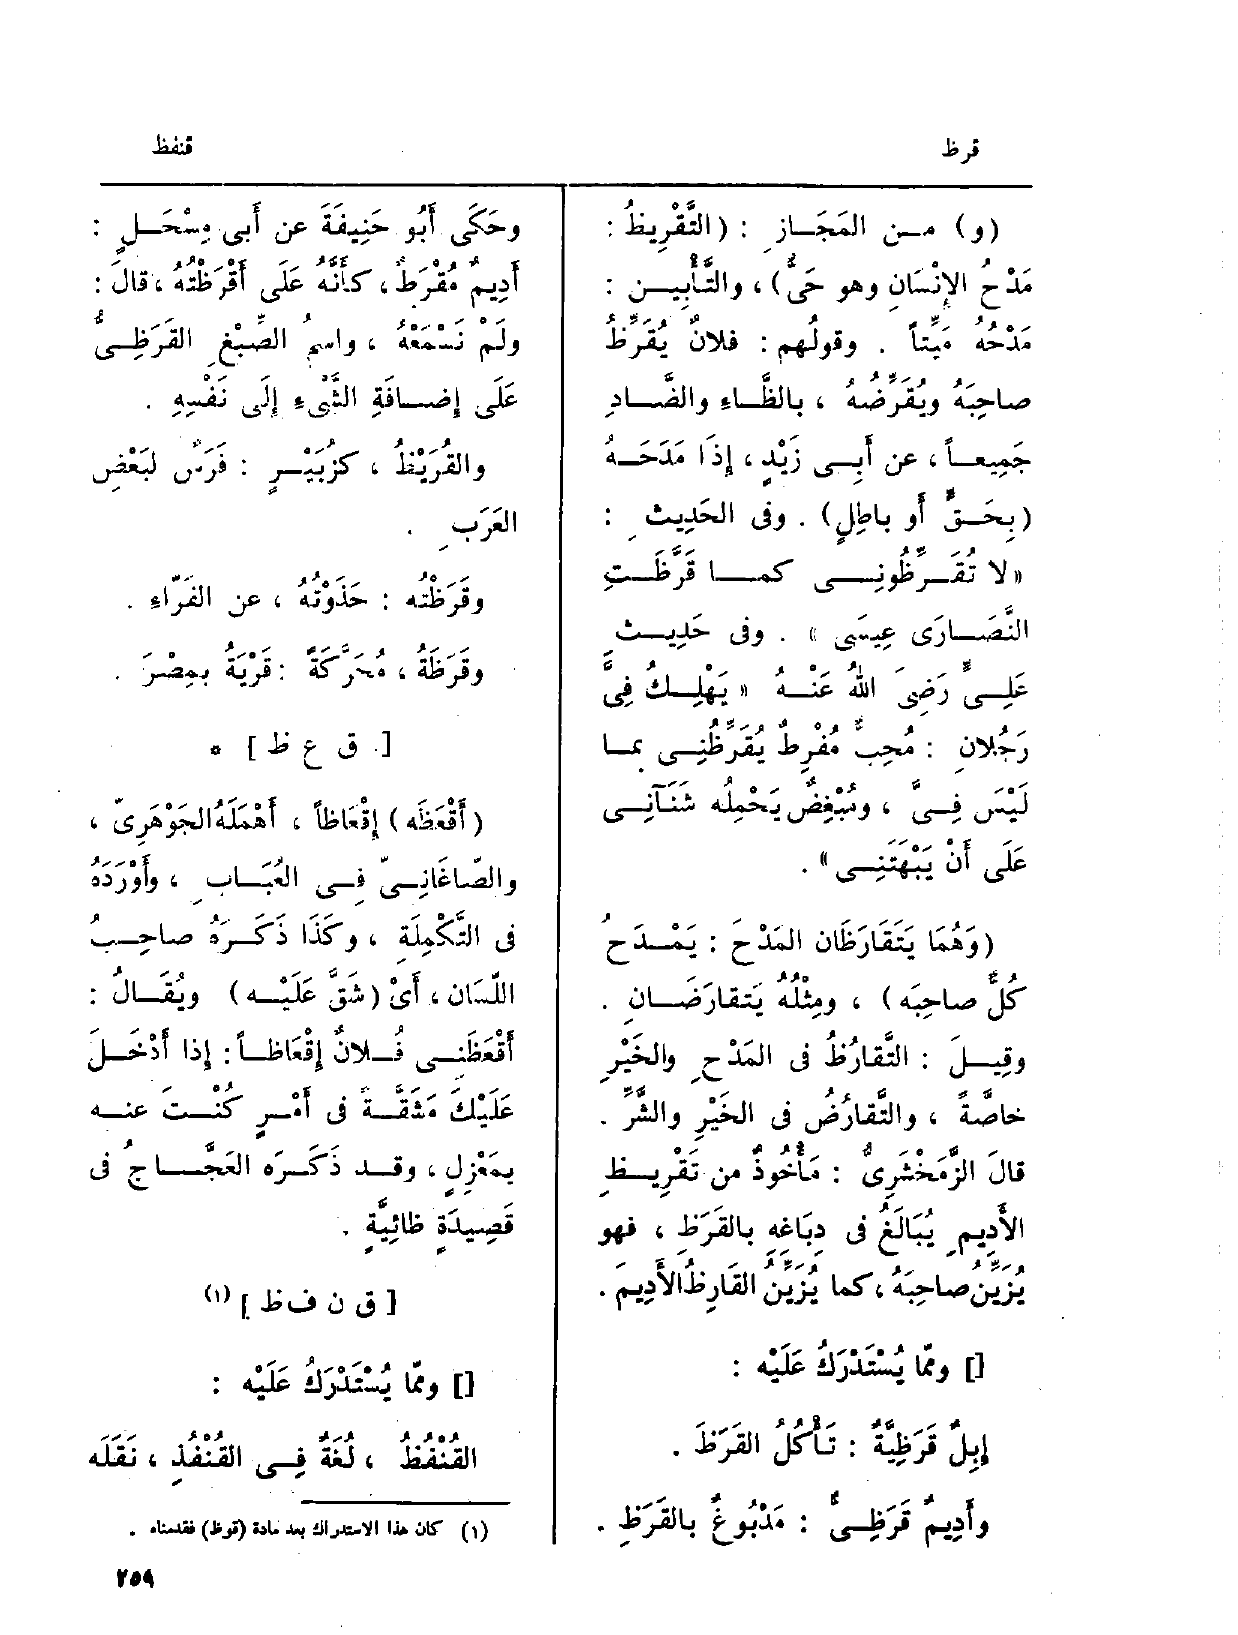 قرظ
قنفظ
(و) مـن المَجَـازِ : (التَّقْرِيظُ :
مَدْحُ الإِنْسَانِ وهو حَيٌّ) ، والتَّأْبِيـن :
مَدْحُهُ مَيِّتاً . وقولُهم : فلانٌ يُقَرِّظُ
صاحِبَهُ ويُقَرِّضُهُ ، بالظَّـاءِ والضَّـادِ
جَمِيعـاً ، عن أَبِـى زَيْدٍ ، إِذَا مَدَحَـهُ
(بِحَـقٍّ أَو باطِلٍ) . وفى الحَدِيـثِ :
«لا تُقَـرِّظُونِـــى كمــا قَرَّظَـتِ
النَّصَـارَى عِيسَى » . وفى حَدِيـثِ
عَلِـىٍّ رَضِىَ اللهُ عَنْـهُ « يَهْلِـكُ فِىَّ
رَجُلانِ : مُحِبٌّ مُفْرِطٌ يُقَرِّظُنِـى بمـا
لَيْسَ فِـىَّ ، ومُبْغِضٌ يَحْمِلُه شَنَآنِـى
عَلَى أَنْ يَبْهَتَنِـى» .
(وَهُمَا يَتَقَارَظَان المَدْحَ : يَمْـدَحُ
كُلٌّ صاحِبَه) ، ومِثْلُهُ يَتَقارَضَـانِ .
وقِيـلَ : التَّقارُظُ فى المَدْحِ والخَيْرِ
خاصَّةً ، والتَّقارُضُ فى الخَيْرِ والشَّرِّ .
قالَ الزَّمَخْشَرِىُّ : مَأْخُوذٌ من تَقْرِيـظِ
الأَدِيمِ يُبَالَغُ فى دِبَاغِهِ بالقَرَظِ ، فهو
يُزَيِّنُ صاحِبَهُ ، كما يُزَيِّنُ القَارِظُ الأَدِيمَ .
[] وممّا يُسْتَدْرَكُ عَلَيْه :
إِبِلٌ قَرَظِيَّةٌ : تَأْكُلُ القَرَظَ .
وأَدِيمٌ قَرَظِـىٌّ : مَدْبُوغٌ بالقَرَظِ .
وحَكَى أَبُو حَنِيفَةَ عن أَبى مِسْحَـلٍ :
أَدِيمٌ مُقْرَظٌ ، كأَنَّهُ عَلَى أَقْرَظْتُهُ ، قالَ :
ولَمْ نَسْمَعْهُ ، واسمُ الصِّبْغِ القَرَظِـىُّ
عَلَى إِضَـافَةِ الشَّىْءِ إِلَى نَفْسِهِ .
والقُرَيْظُ ، كزُبَيْـرٍ : فَرَسٌ لبَعْضِ
العَرَبِ .
وقَرَظْتُه : حَذَوْتُهُ ، عن الفَرّاءِ .
وقَرَظَةُ ، مُحَرَّكَةً : قَرْيَةٌ بمِصْرَ .
[ ق ع ظ ] *
(أَقْعَظَه) إِقْعَاظاً ، أَهْمَلَهُ الجَوْهَرِىّ ،
والصّاغَانِـىّ فِـى العُبَـابِ ، وأَوْرَدَهُ
فى التَّكْمِلَةِ ، وكَذَا ذَكَـرَهُ صاحِـبُ
اللِّسَان ، أَىْ (شَقَّ عَلَيْـه) ويُقَـالُ :
أَقْعَظَنِـى فُـلانٌ إِقْعَاظـاً : إِذا أَدْخَـلَ
عَلَيْكَ مَشَقَّـةً فى أَمْـرٍ كُنْـتَ عنـه
بمَعْزِلٍ ، وقـد ذَكَـرَه العَجَّـاجُ فى
قَصِيدَةٍ ظائِيَّةٍ .
[ ق ن ف ظ ] (١)
[] وممّا يُسْتَدْرَكُ عَلَيْه :
القُنْفُظُ ، لُغَةٌ فِـى القُنْفُذِ ، نَقَلَه
(١) كان هذا الاستدراك بعد مادة (قرظ) فقدمناه .
٢٥٩